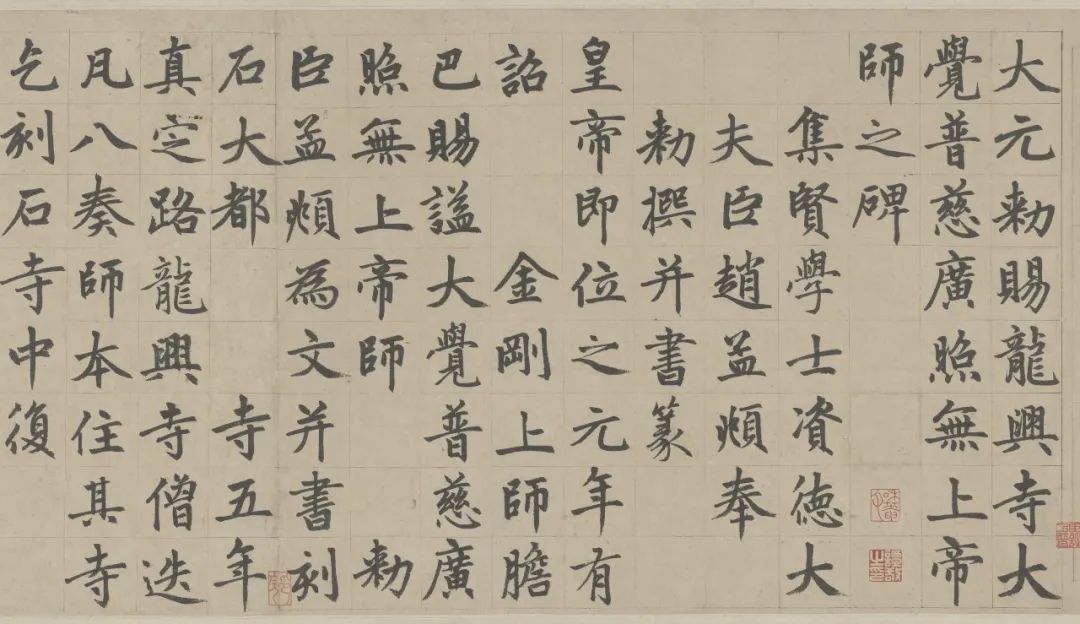 大元勅賜龍興寺大
覺普慈廣照無上帝
師之碑
集賢學士資德大
夫臣趙孟頫奉
勅撰并書篆
皇帝即位之元年有
詔 金剛上師膽
巴賜謚大覺普慈廣
照無上帝師 勅
臣孟頫為文并書刻
石大都 寺五年
真定路龍興寺僧迭
凡八奏師本住其寺
乞刻石寺中復